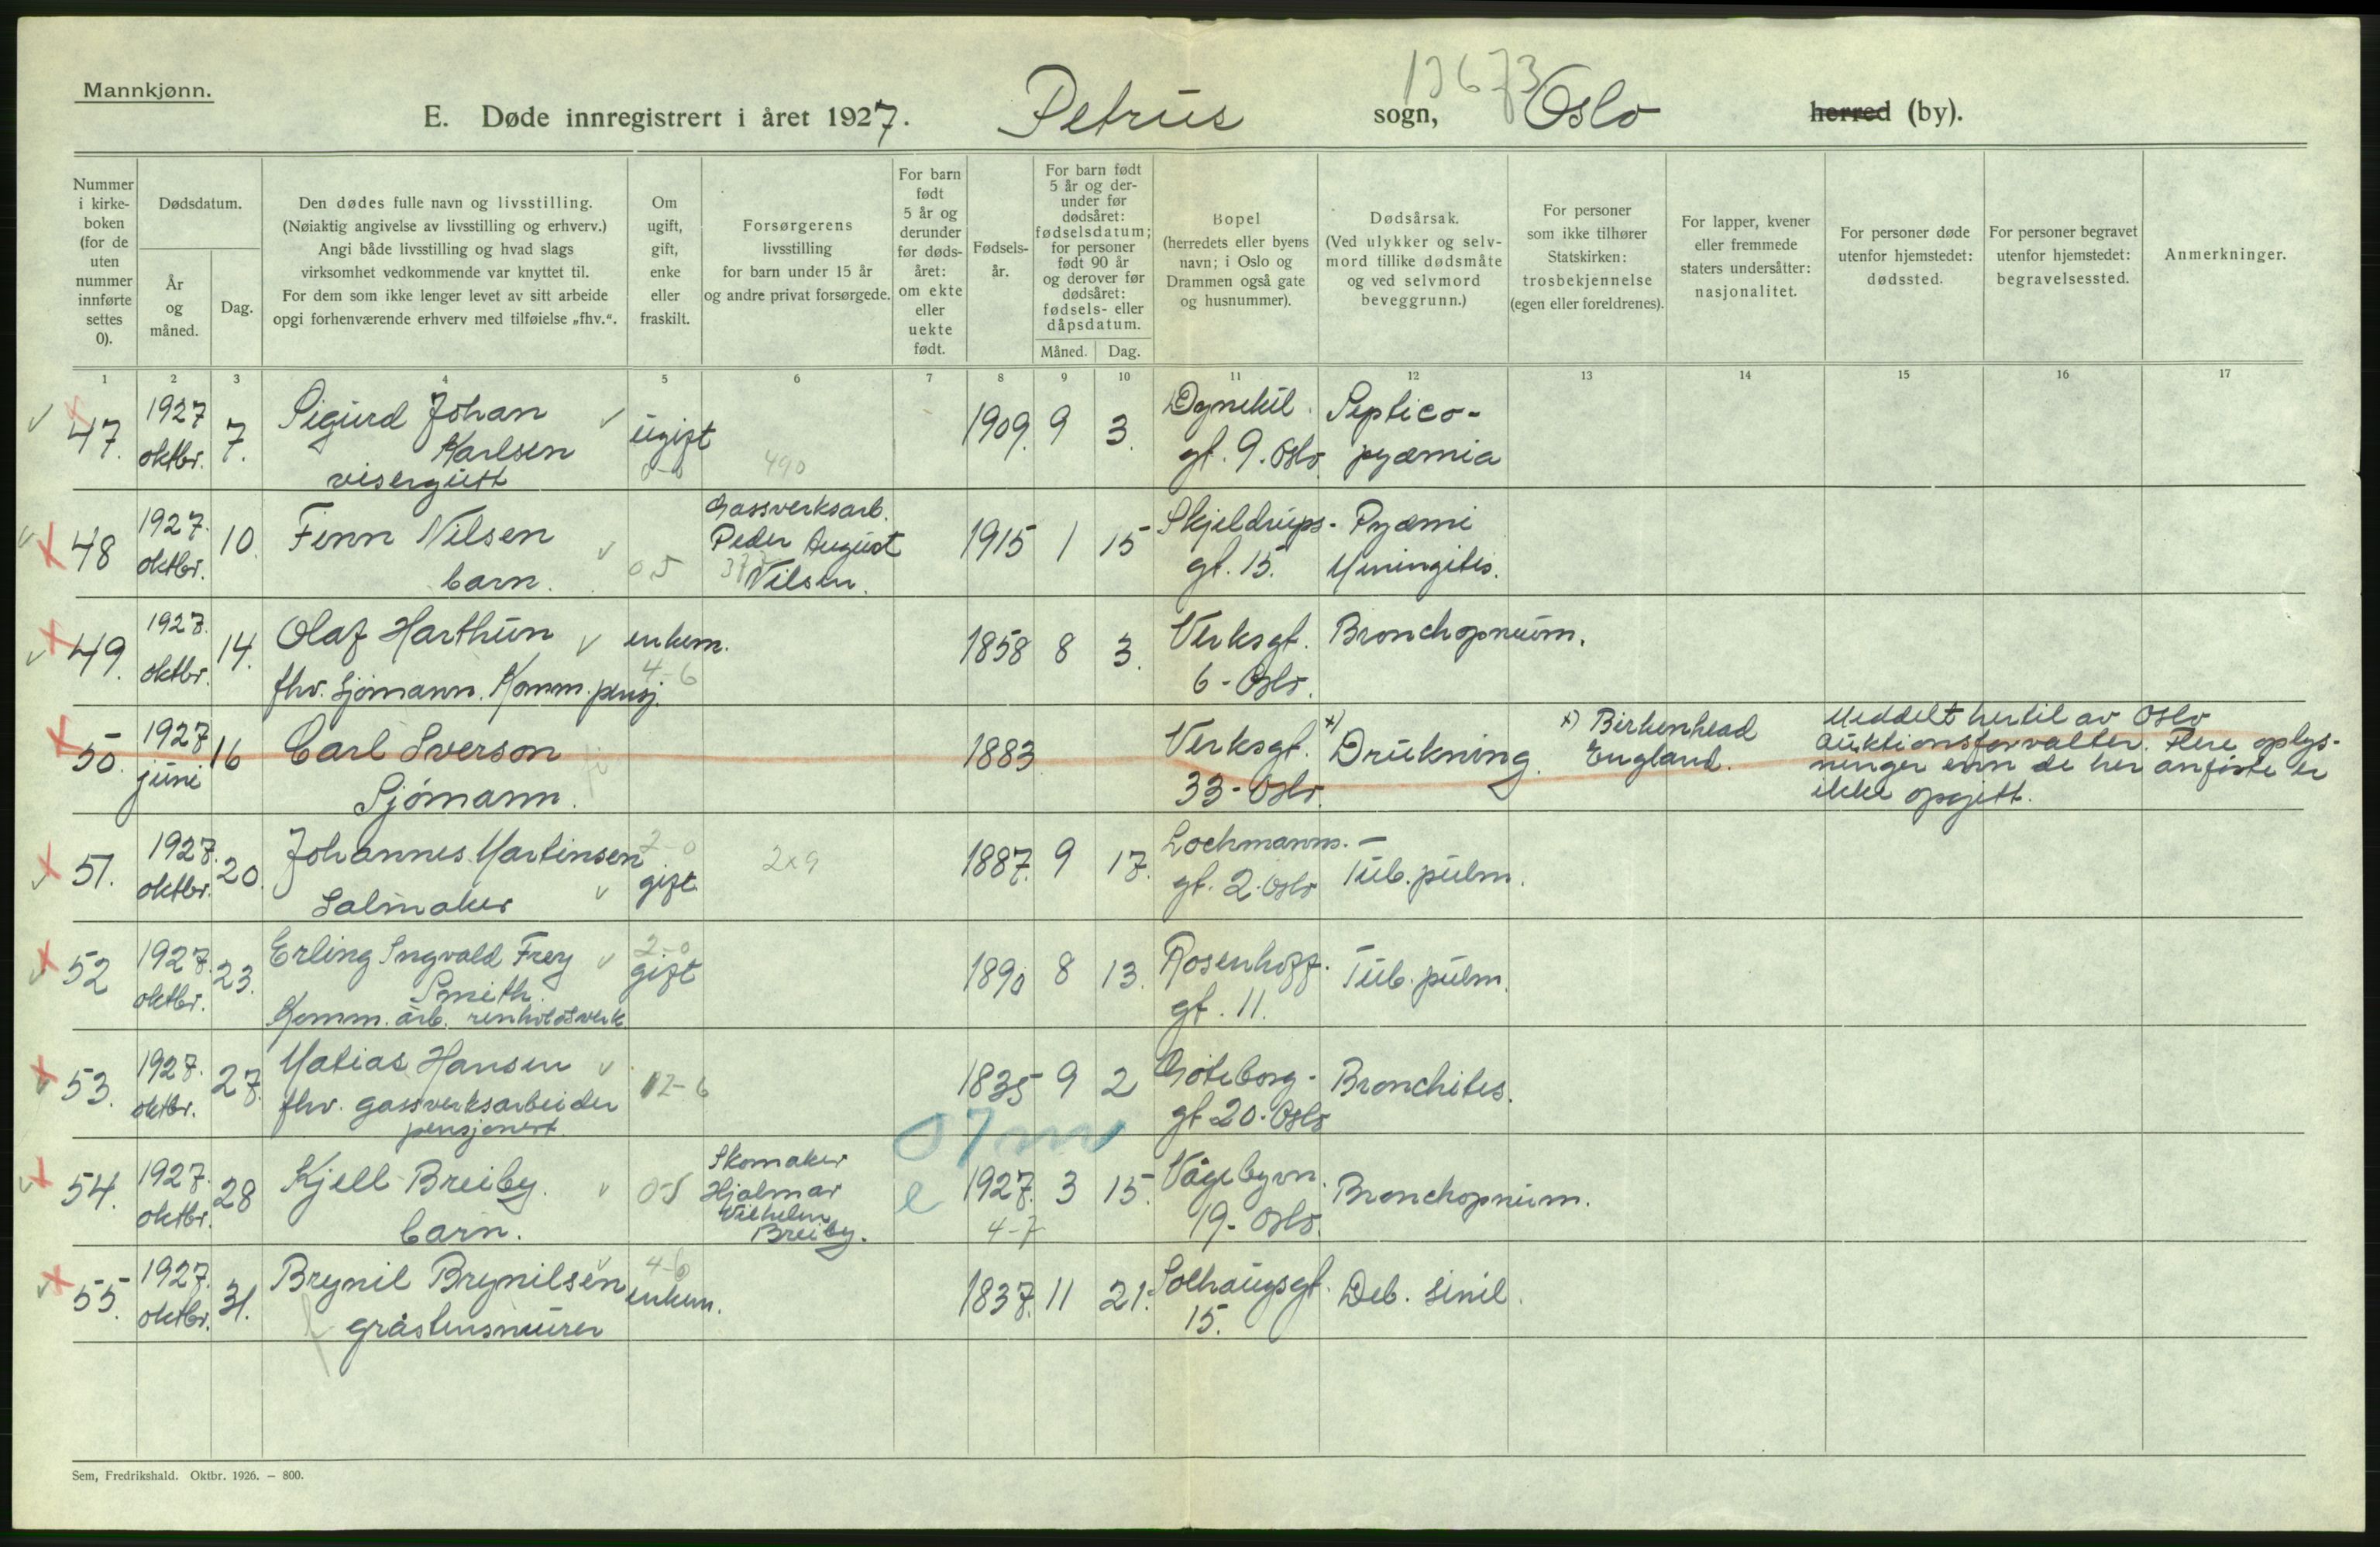 Mannkjønn.
13673
E. Døde innregistrert i året 1927. Petrus sogn, Oslo herred (by).
Nummer i kirke- boken (for de uten nummer innførte settes 0).
Dødsdatum.
År og måned.
Dag.
Den dødes fulle navn og livsstilling.
(Nøiaktig angivelse av livsstilling og erhverv.)
Angi både livsstilling og hvad slags
virksomhet vedkommende var knyttet til.
For dem som ikke lenger levet av sitt arbeide
opgi forhenværende erhverv med tilføielse „fhv.“.
Om ugift, gift, enke eller fraskilt.
Forsørgerens
livsstilling
for barn under 15 år
og andre privat forsørgede.
For barn født 5 år og derunder før døds- året: om ekte eller uekte født.
Fødsels- år.
For barn født 5 år og der- under før dødsåret: fødselsdatum; for personer født 90 år og derover før dødsåret: fødsels- eller dåpsdatum.
Måned. Dag.
Bopel
(herredets eller byens
navn; i Oslo og
Drammen også gate
og husnummer).
Dødsårsak.
(Ved ulykker og selv-
mord tillike dødsmåte
og ved selvmord
beveggrunn.)
For personer
som ikke tilhører
Statskirken:
trosbekjennelse
(egen eller foreldrenes).
For lapper, kvener
eller fremmede
staters undersåtter:
nasjonalitet.
For personer døde
utenfor hjemstedet:
dødssted.
For personer begravet
utenfor hjemstedet:
begravelsessted.
Anmerkninger.
1 2 3 4 5 6 7 8 9 10 11 12 13 14 15 16 17
47. 1927 oktbr. 7. Sigurd Johan
Karlsen
visergutt
ugift 0-0 490 1909. 9 3. Dynekil.
gt. 9. Oslo
Septico-
pyæmia
48 1927. oktbr. 10. Finn Nilsen
barn.
05
Gassverksarb.
Peder August
Nilsen.
1915 1 15 Skjeldrups-
gt. 15.
Pyæmi
Meningites.
49. 1927. oktbr. 14. Olaf Harthun
fhv. Sjømann. Komm. pensj.
enkem. 4-6 1858 8 3. Verksgt.
6 - Oslo.
Bronchopneum.
50. 1927 juni 16 Carl Sverson
Sjømann.
1883 Verksgt.
33 - Oslo.
x) Drukning.
x) Birkenhead
England.
Meddelt hertil av Oslo
auktionsforvalter. Flere oplys-
ninger enn de her anførte er
ikke opgjett.
51. 1927. oktbr. 20. Johannes Martinsen
Salmaker
2-0
gift. 2x9 1887. 9 17. Lochmanns. -
gt. 2. Oslo
Tub. pulm.
52 1927. oktbr. 23. Erling Ingvald Frey
Smith.
Komm. arb. renholdsverk
2-0
gift 1890 8 13. Rosenhoff.
gt. 11.
Tub. pulm.
53. 1927. oktbr. 27. Matias Hansen
fhv. gassverksarbeider
pensjonert
12-6 1835 9 2 Gøteborg-
gt 20. Oslo
Bronchites.
54. 1927. oktbr. 28 Kjell Breiby.
barn.
0-5
Skomaker
Hjalmar
Vilhelm
Breiby.
07m
e 1927. 3 15. Vågebyvn.
4-7
19. Oslo.
Bronchopneum.
55. 1927. oktbr. 31. Brynil Brynilsen
f gråstensmurer
4-6
enkem. 1837. 11 21. Solhaugsgt.
15.
Deb. senil.
Sem, Fredrikshald. Oktbr. 1926. — 800.